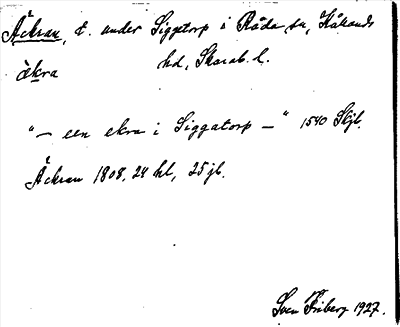 Äckran, t. under Siggatorp i Råda sn, Kåkands
àkra hd, Skarab. l.
"– een ekra i Siggatorp –" 1540 Skjb.
Äckran 1808. 24 kl, 25 jb.
Sven Friberg 1927.